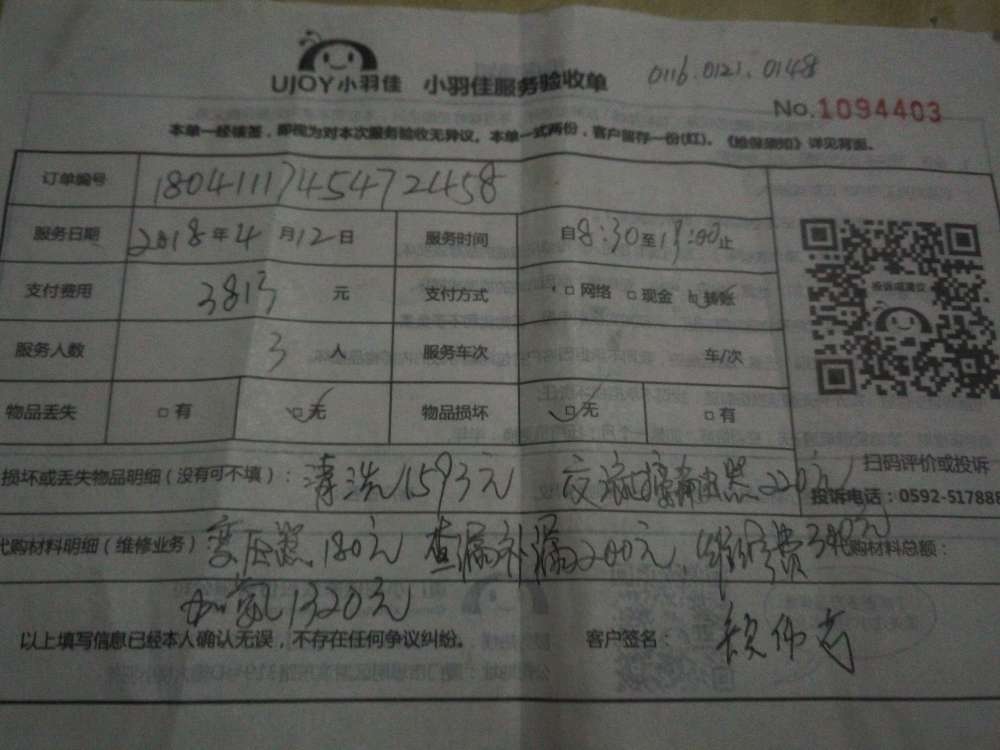 UJOY小羽佳 小羽佳服务验收单
0116.0121.0148
No.1094403
本单一经核签,即视为对本次服务验收无异议。本单一式两份,客户留存一份(红)。《维保须知》详见背面。
订单编号 180411174547 2458
服务日期 2018年4月12日 服务时间 自8:30至17:00止
支付费用 3813元 支付方式 □网络 □现金 □转账
服务人数 3人 服务车次 车/次
物品丢失 □有 □无 物品损坏 □无 □有
投诉或建议
扫码评价或投诉
投诉电话:0592-517888
损坏或丢失物品明细(没有可不填): 清洗1593元 交流接触器220元
代购材料明细(维修业务) 变压器180元 查漏补漏200元、维修费300元
购材料总额:
加氟1320元
以上填写信息已经本人确认无误,不存在任何争议纠纷。 客户签名: